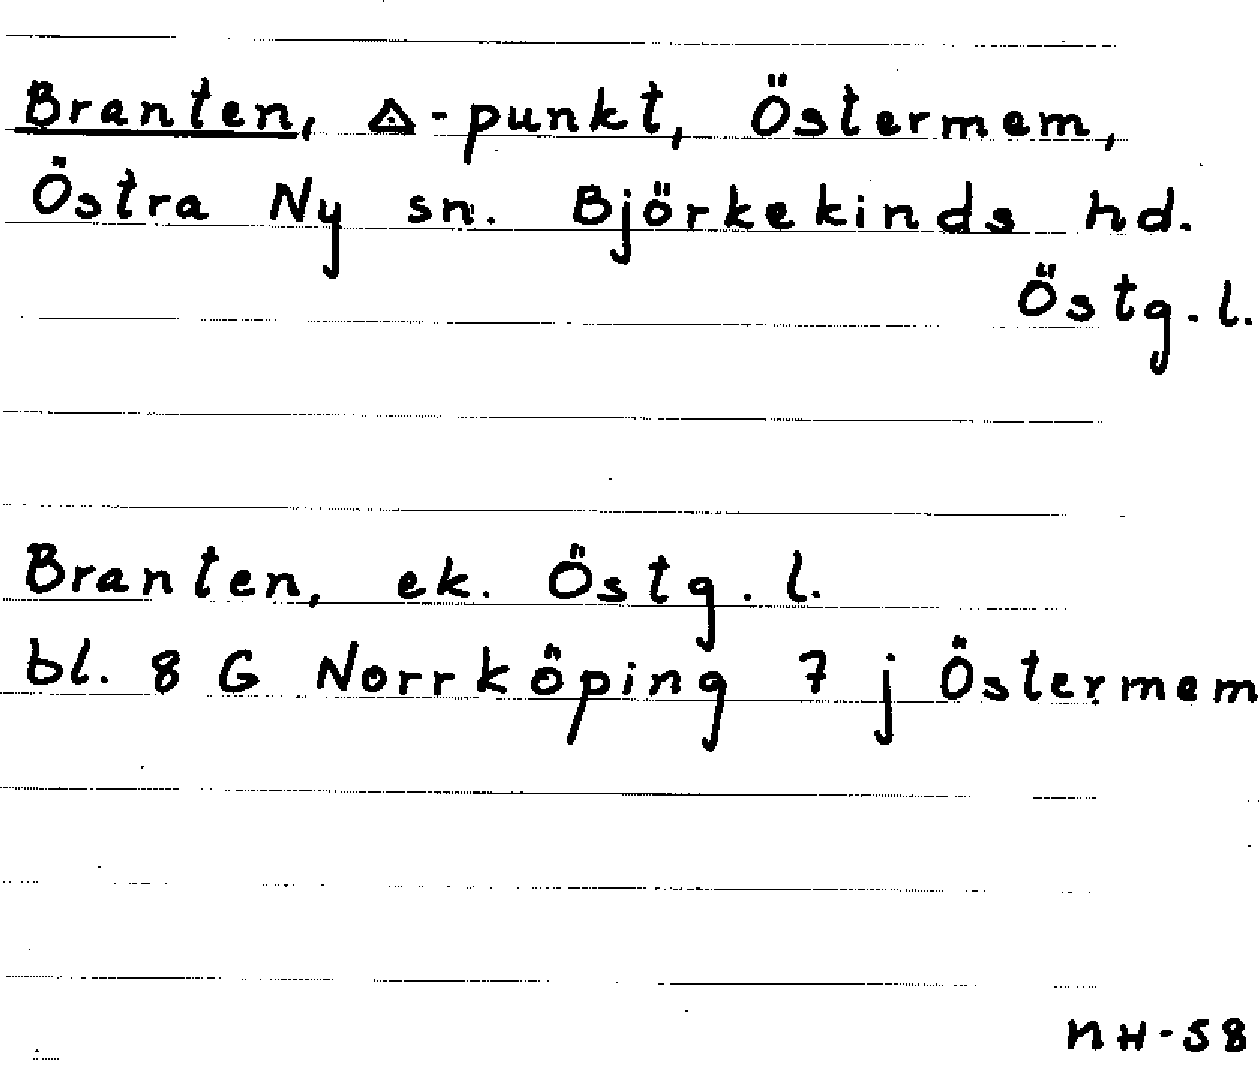 Branten, △-punkt, Östermem,
Östra Ny sn. Björkekinds hd.
Östg. l.
Branten, ek. Östg. l.
bl. 8 G Norrköping 7 j Östermem
NH-58